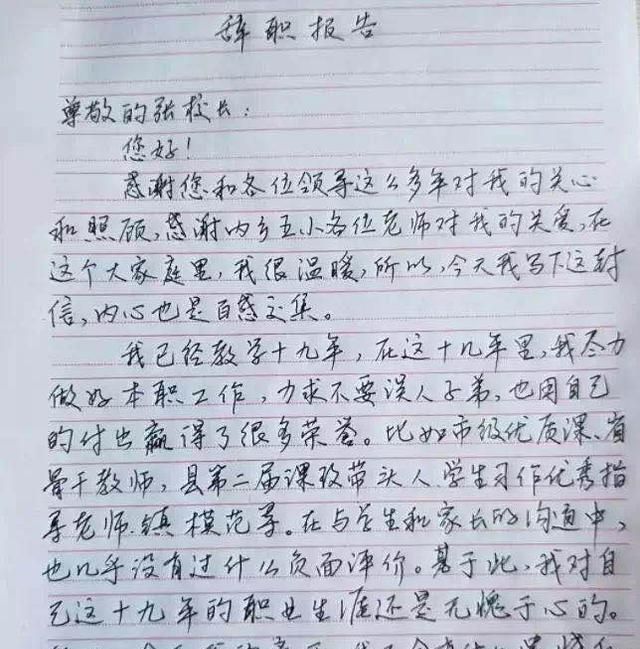 辞职报告
尊敬的张校长:
您好!
感谢您和各位领导这么多年对我的关心
和照顾,感谢内乡五小各位老师对我的关爱,在
这个大家庭里,我很温暖,所以,今天我写下这封
信,内心也是百感交集。
我已经教学十九年,在这十九年里,我尽力
做好本职工作,力求不要误人子弟,也用自己
的付出赢得了很多荣誉。比如市级优质课、省
骨干教师,县第二届课改带头人,学生习作优秀指
导老师.镇模范等。在与学生和家长的沟通中,
也几乎没有过什么负面评价。基于此,我对自
己这十九年的职业生涯还是无愧于心的。